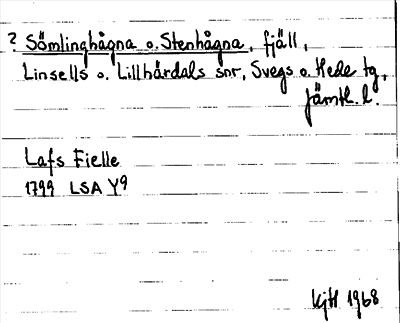 ? Sömlinghågna o. Stenhågna, fjäll,
Linsells o. Lillhärdals snr, Svegs o. Hede tg,
Jämtl. l.
Lafs Fielle
1799 LSA Y9
KjH 1968